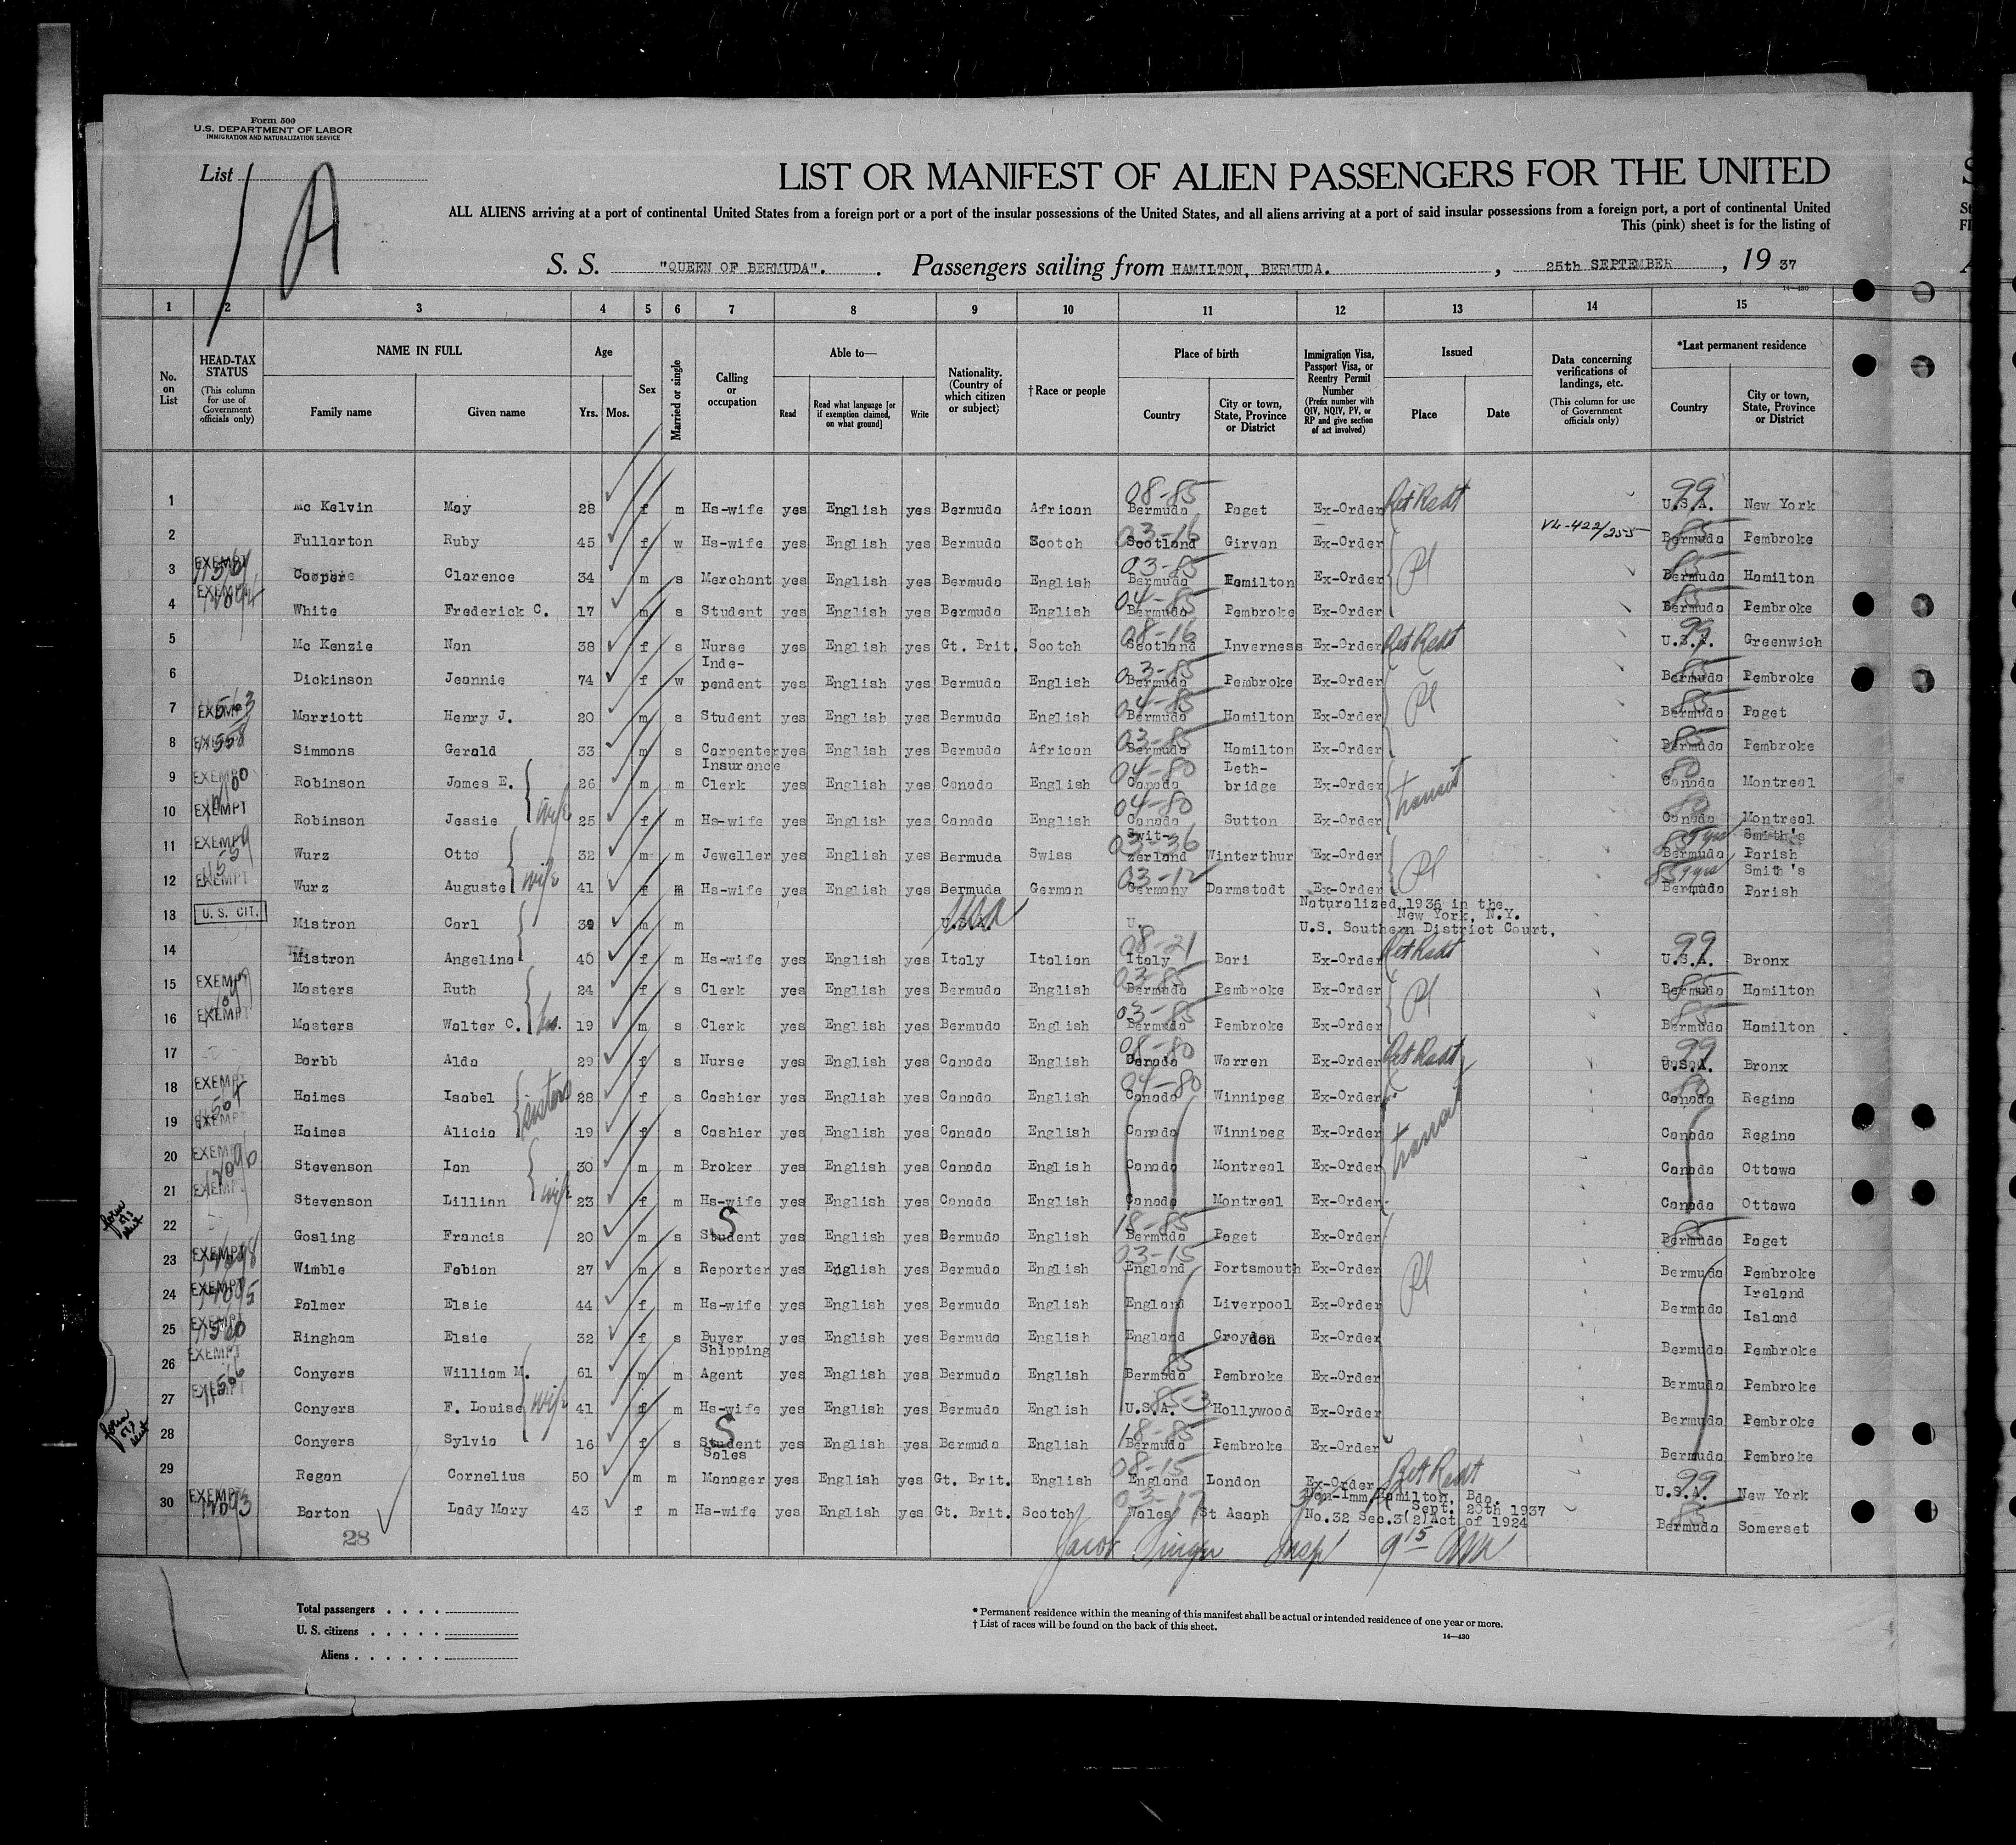 Form 500
U.S. DEPARTMENT OF LABOR
IMMIGRATION AND NATURALIZATION SERVICE
List
1 A
LIST OR MANIFEST OF ALIEN PASSENGERS FOR THE UNITED
ALL ALIENS arriving at a port of continental United States from a foreign port or a port of the insular possessions of the United States, and all aliens arriving at a port of said insular possessions from a foreign port, a port of continental United
This (pink) sheet is for the listing of
S. S. "QUEEN OF BERMUDA". Passengers sailing from HAMILTON, BERMUDA. , 25th SEPTEMBER , 19 37
14—430
1 2 3 4 5 6 7 8 9 10 11 12 13 14 15
No. on List
HEAD-TAX STATUS (This column for use of Government officials only)
NAME IN FULL
Family name Given name
Age
Yrs. Mos.
Sex
Married or single
Calling or occupation
Able to—
Read Read what language [or if exemption claimed, on what ground] Write
Nationality. (Country of which citizen or subject)
†Race or people
Place of birth
Country City or town, State, Province or District
Immigration Visa, Passport Visa, or Reentry Permit Number (Prefix number with QIV, NQIV, PV, or RP and give section of act involved)
Issued
Place Date
Data concerning verifications of landings, etc. (This column for use of Government officials only)
*Last permanent residence
Country City or town, State, Province or District
1 Mc Kelvin May 28 f m Hs-wife yes English yes Bermuda African 08-85 Bermuda Paget Ex-Order Ret Resdt 99 U.S.A. New York
2 Fullarton Ruby 45 f w Hs-wife yes English yes Bermuda Scotch 03-16 Scotland Girvan Ex-Order VL-422/255 85 Bermuda Pembroke
3 EXEMPT Cooper Clarence 34 m s Merchant yes English yes Bermuda English 03-85 Bermuda Hamilton Ex-Order Pl 85 Bermuda Hamilton
4 EXEMPT White Frederick C. 17 m s Student yes English yes Bermuda English 04-85 Bermuda Pembroke Ex-Order 85 Bermuda Pembroke
5 Mc Kenzie Nan 38 f s Nurse yes English yes Gt. Brit. Scotch 08-16 Scotland Inverness Ex-Order Ret Resdt 99 U.S.A. Greenwich
6 Dickinson Jeannie 74 f w Inde-pendent yes English yes Bermuda English 03-85 Bermuda Pembroke Ex-Order 85 Bermuda Pembroke
7 EXEMPT Marriott Henry J. 20 m s Student yes English yes Bermuda English 04-85 Bermuda Hamilton Ex-Order Pl 85 Bermuda Paget
8 EXEMPT 11558 Simmons Gerald 33 m s Carpenter yes English yes Bermuda African 03-85 Bermuda Hamilton Ex-Order 85 Bermuda Pembroke
9 EXEMPT Robinson James E. 26 m m Insurance Clerk yes English yes Canada English 04-80 Canada Leth-bridge Ex-Order transit 80 Canada Montreal
10 EXEMPT Robinson Jessie wife 25 f m Hs-wife yes English yes Canada English 04-80 Canada Sutton Ex-Order 80 Canada Montreal
11 EXEMPT Wurz Otto 32 m m Jeweller yes English yes Bermuda Swiss 03-36 Swit-zerland Winterthur Ex-Order Pl 85 Bermuda Smith's Parish
12 EXEMPT Wurz Auguste wife 41 f m Hs-wife yes English yes Bermuda German 03-12 Germany Darmstadt Ex-Order 85 Bermuda Smith's Parish
13 U. S. CIT. Mistron Carl 39 m m U.S.A. U. Naturalized 1936 in the New York, N.Y. U.S. Southern District Court.
14 Mistron Angelina 40 f m Hs-wife yes English yes Italy Italian 08-21 Italy Bari Ex-Order Ret Resdt 99 U.S.A. Bronx
15 EXEMPT Masters Ruth 24 f s Clerk yes English yes Bermuda English 03-85 Bermuda Pembroke Ex-Order Pl 85 Bermuda Hamilton
16 EXEMPT Masters Walter C. 19 m s Clerk yes English yes Bermuda English 03-85 Bermuda Pembroke Ex-Order 85 Bermuda Hamilton
17 Barbb Alda 29 f s Nurse yes English yes Canada English 08-80 Canada Warren Ex-Order Ret Resdt 99 U.S.A. Bronx
18 EXEMPT Haimes Isabel 28 f s Cashier yes English yes Canada English 04-80 Canada Winnipeg Ex-Order transit 80 Canada Regina
19 EXEMPT Haimes Alicia sisters 19 f s Cashier yes English yes Canada English Canada Winnipeg Ex-Order Canada Regina
20 EXEMPT Stevenson Ian 30 m m Broker yes English yes Canada English Canada Montreal Ex-Order Canada Ottawa
21 EXEMPT Stevenson Lillian wife 23 f m Hs-wife yes English yes Canada English Canada Montreal Ex-Order Canada Ottawa
22 Gosling Francis 20 m s S Student yes English yes Bermuda English 18-85 Bermuda Paget Ex-Order 85 Bermuda Paget
23 EXEMPT Wimble Fabian 27 m s Reporter yes English yes Bermuda English 03-15 England Portsmouth Ex-Order Pl Bermuda Pembroke
24 EXEMPT Palmer Elsie 44 f m Hs-wife yes English yes Bermuda English England Liverpool Ex-Order Bermuda Ireland Island
25 EXEMPT 11560 Ringham Elsie 32 f s Buyer yes English yes Bermuda English England Croydon Ex-Order Bermuda Pembroke
26 EXEMPT Conyers William M. 61 m m Shipping Agent yes English yes Bermuda English 85 Bermuda Pembroke Ex-Order Bermuda Pembroke
27 EXEMPT 11566 Conyers F. Louise wife 41 f m Hs-wife yes English yes Bermuda English 85-3 U.S.A. Hollywood Ex-Order Bermuda Pembroke
28 Conyers Sylvia 16 f s S Student yes English yes Bermuda English 18-85 Bermuda Pembroke Ex-Order Bermuda Pembroke
29 Regan Cornelius 50 m m Sales Manager yes English yes Gt. Brit. English 08-15 England London Ex-Order Ret Resdt 99 U.S.A. New York
30 EXEMPT 12093 Barton Lady Mary 43 f m Hs-wife yes English yes Gt. Brit. Scotch 03-17 Wales St Asaph Non-Imm Hamilton, Bda. Sept. 20th 1937 No.32 Sec.3(2)Act of 1924 85 Bermuda Somerset
28
Jacob Singer Insp 9 15 AM
Total passengers . . . .
U. S. citizens . . . . .
Aliens . . . . . .
* Permanent residence within the meaning of this manifest shall be actual or intended residence of one year or more.
† List of races will be found on the back of this sheet.
14—430